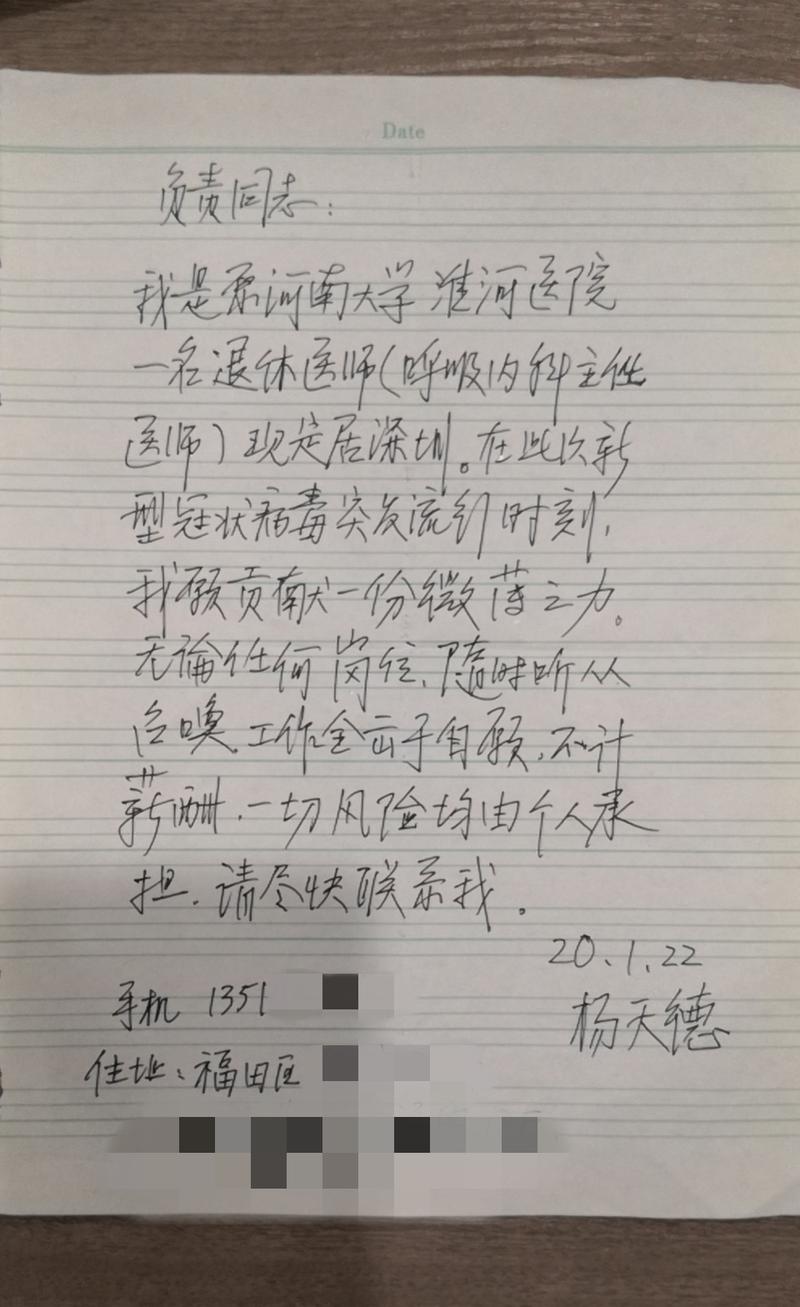 Date
负责同志：
我是原河南大学淮河医院
一名退休医师(呼吸内科主任
医师)现定居深圳。在此次新
型冠状病毒突发流行时刻,
我愿贡献一份微薄之力。
无论任何岗位,随时听从
召唤,工作全出于自愿,不计
薪酬,一切风险均由个人承
担,请尽快联系我。
20.1.22
杨天德
手机 1351
住址：福田区